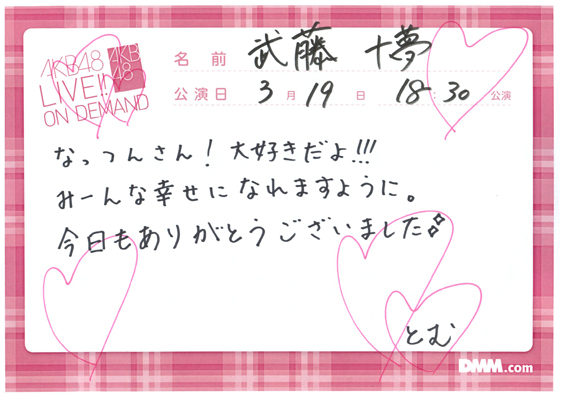 AKB48
LIVE!!
ON DEMAND
AKB
48
名前 武藤 十夢
公演日 3月 19日 18:30 公演
なっつんさん！大好きだよ!!!
みーんな幸せになれますように。
今日もありがとうございました
とむ
DMM.com